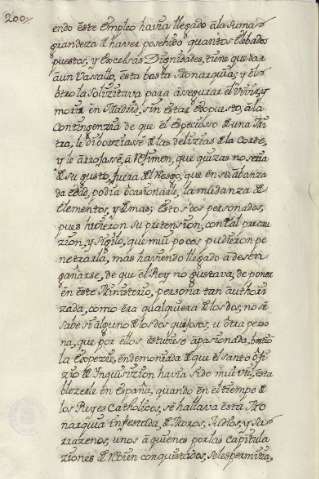 200
endo este Empleo havia llegado à la suma
grandeza de haver posehido quantos elebados
puestos, y excelsas Dignidades, tiene que dar
à un Vasallo, esta basta Monarquia; y el
otro la solizitava para asegurar el vivir, y
morir en Madrid, sin estar expuesto, à la
contingenzia de que el expecioso de una
le divorciase de las delizias de la Corte,
y le arrojase, à que quizas no seria
de su gusto, fuera del riesgo, que en su abanza
da edad, podia ocasionarle, la mudanza de
elementos, y climas; estos dos personados,
pues hizieron su pretension, con tal precau
zion, y sigilo, que mui pocos pudieron pe
netrarla, mas haviendo llegado a desen
gañarse, de que el Rey no gustava, de poner
en este Ministerio, persona tan authori
zada, como era qualquiera de los dos, no se
sabe si alguno de los dos quejosos, u otra perso
na, que por ellos estubiese apasionada,
la especie, endemoniada de que el santo Ofi
zio de Inquisizion havia sido mui util, esta
blezerle en España, quando en el tiempo de
los Reyes Catholicos, se hallava esta Mo
narquia infestada, de Moros, Judios, y Sa
rrazenos, unos à quienes por las Capitula
ziones de recien conquistados, se les permitia,